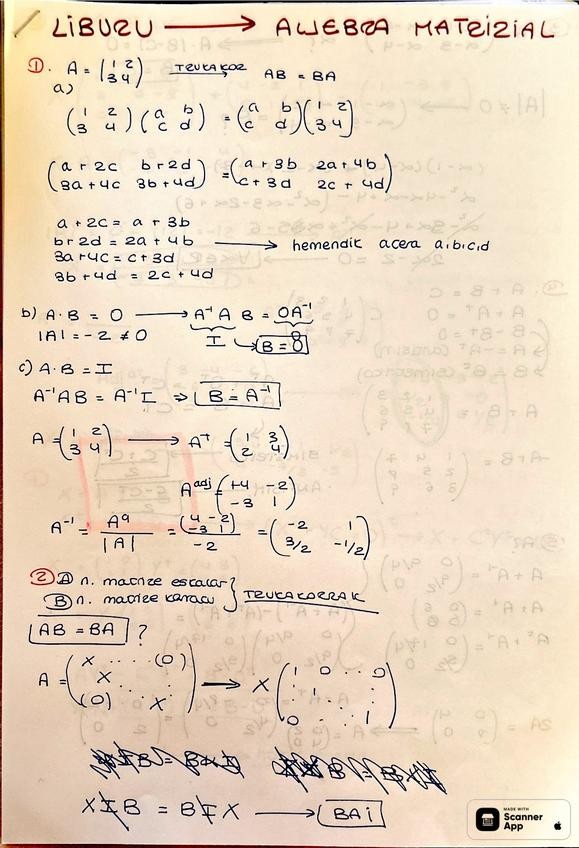 LIBURU → ALJEBRA MATRIZIAL
1. A = (1 2 / 3 4) TRUKAKOR → AB = BA
a)
(1 2 / 3 4) (a b / c d) = (a b / c d) (1 2 / 3 4)
(a+2c b+2d / 3a+4c 3b+4d) = (a+3b 2a+4b / c+3d 2c+4d)
a+2c = a+3b
b+2d = 2a+4b → hemendik atera a,b,c,d
3a+4c = c+3d
3b+4d = 2c+4d
b) A·B = 0 → A⁻¹ A B = 0A⁻¹
|A| = -2 ≠ 0 I 0
B = 0
c) A·B = I
A⁻¹AB = A⁻¹I ⇒ B = A⁻¹
A = (1 2 / 3 4) → Aᵗ = (1 3 / 2 4)
Aadj = (+4 -2 / -3 1)
A⁻¹ = Aᵃ / |A| = (4 -2 / -3 1) / -2 = (-2 1 / 3/2 -1/2)
2 A n. matrize eskalar
B n. matrize karratu } TRUKAKORRAK
AB = BA ?
A = (x ... (0) / x ... / (0) ... x) → x (1 0 .. 0 / . 1 . . / 0 . . 1)
x I B = B I x → BAI
MADE WITH
Scanner
App